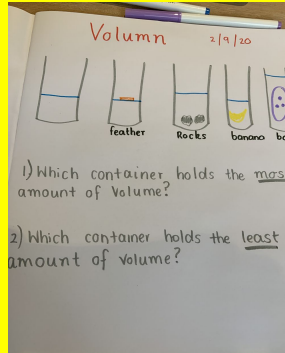 Volumn
2/9/20
feather
Rocks
banana
1) Which container holds the
amount of Volume?
2) Which container holds the least
amount of volume?